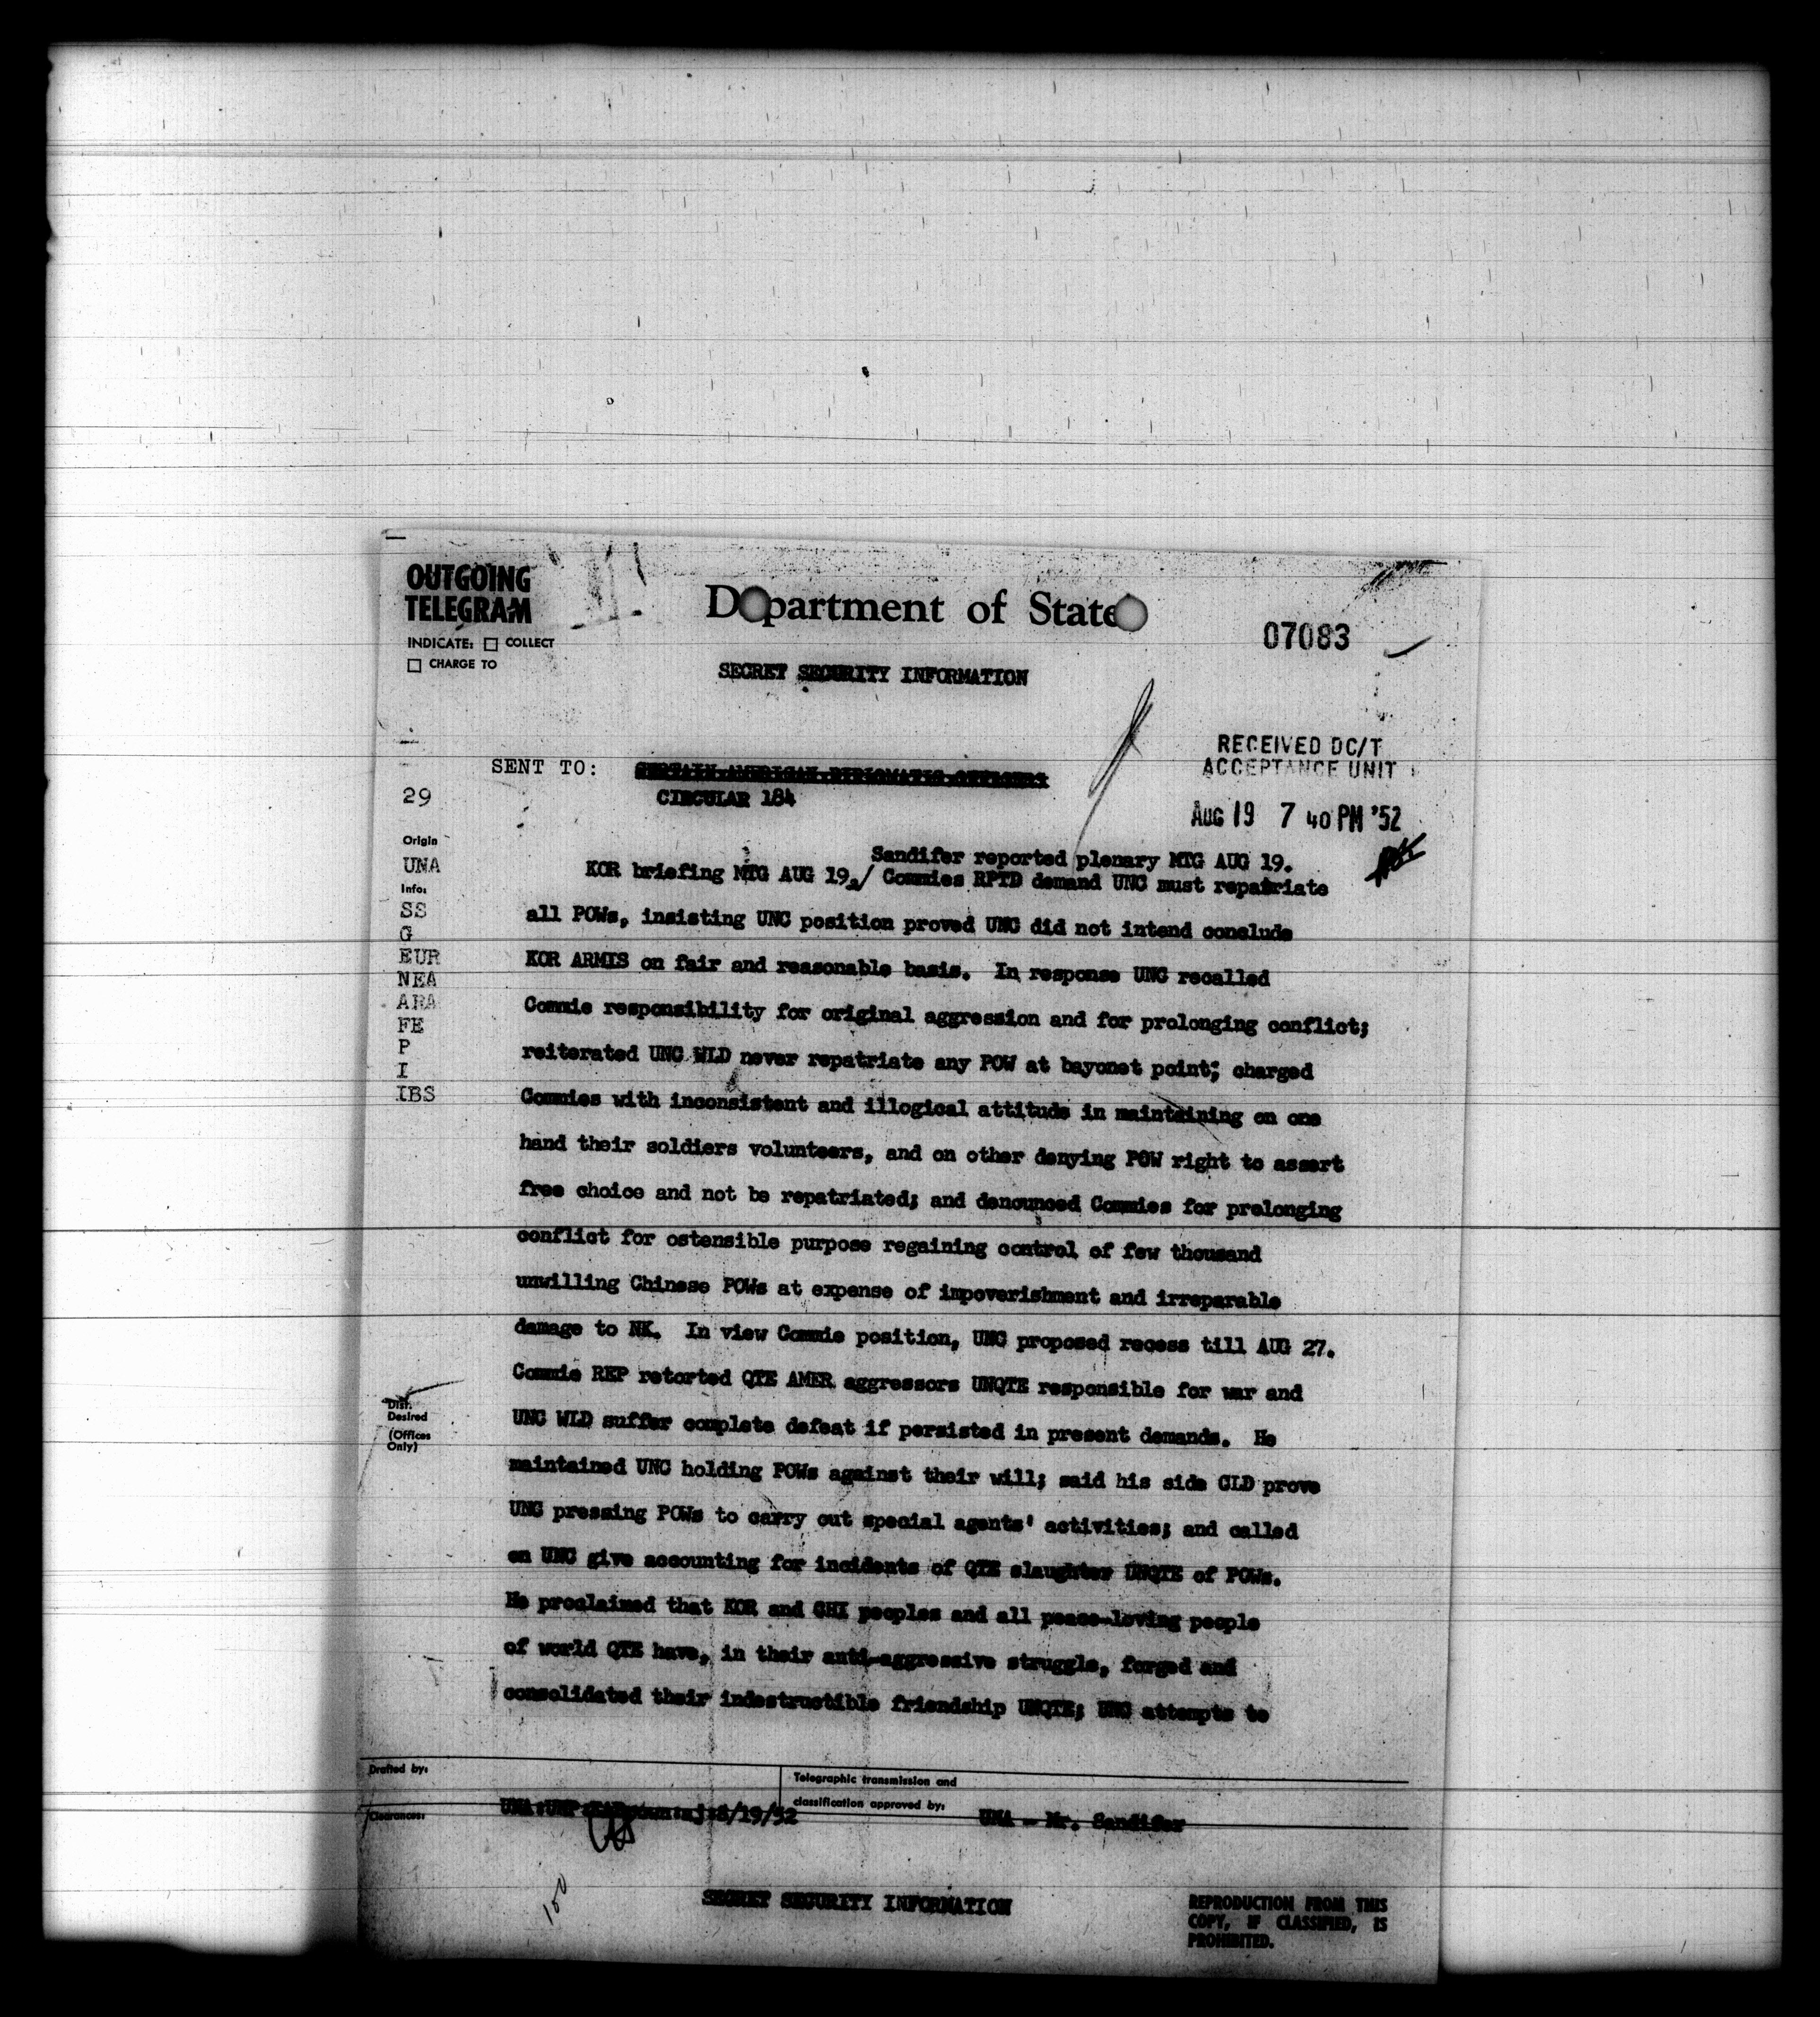 OUTGOING
TELEGRAM
INDICATE: ☐ COLLECT
☐ CHARGE TO
Department of State
07083
SECRET SECURITY INFORMATION
RECEIVED DC/T
ACCEPTANCE UNIT
AUG 19 7 40 PM '52
SENT TO: CERTAIN AMERICAN DIPLOMATIC OFFICERS
CIRCULAR 184
29
Origin
UNA
Info:
SS
G
EUR
NEA
ARA
FE
P
I
IBS
Sandifer reported plenary MTG AUG 19.
KOR briefing MTG AUG 19./ Commies RPTD demand UNC must repatriate
all POWs, insisting UNC position proved UNC did not intend conclude
KOR ARMIS on fair and reasonable basis. In response UNC recalled
Commie responsibility for original aggression and for prolonging conflict;
reiterated UNC WLD never repatriate any POW at bayonet point; charged
Commies with inconsistent and illogical attitude in maintaining on one
hand their soldiers volunteers, and on other denying POW right to assert
free choice and not be repatriated; and denounced Commies for prolonging
conflict for ostensible purpose regaining control of few thousand
unwilling Chinese POWs at expense of impoverishment and irreparable
damage to NK. In view Commie position, UNC proposed recess till AUG 27.
Commie REP retorted QTE AMER aggressors UNQTE responsible for war and
UNC WLD suffer complete defeat if persisted in present demands. He
maintained UNC holding POWs against their will; said his side CLD prove
UNC pressing POWs to carry out special agents' activities; and called
on UNC give accounting for incidents of QTE slaughter UNQTE of POWs.
He proclaimed that KOR and CHI peoples and all peace-loving people
of world QTE have, in their anti-aggressive struggle, forged and
consolidated their indestructible friendship UNQTE; UNC attempts to
Dist.
Desired
(Offices
Only)
Drafted by:
Telegraphic transmission and
classification approved by:
Clearances:
8/19/52
UNA - Mr. Sandifer
100
SECRET SECURITY INFORMATION
REPRODUCTION FROM THIS
COPY, IF CLASSIFIED, IS
PROHIBITED.